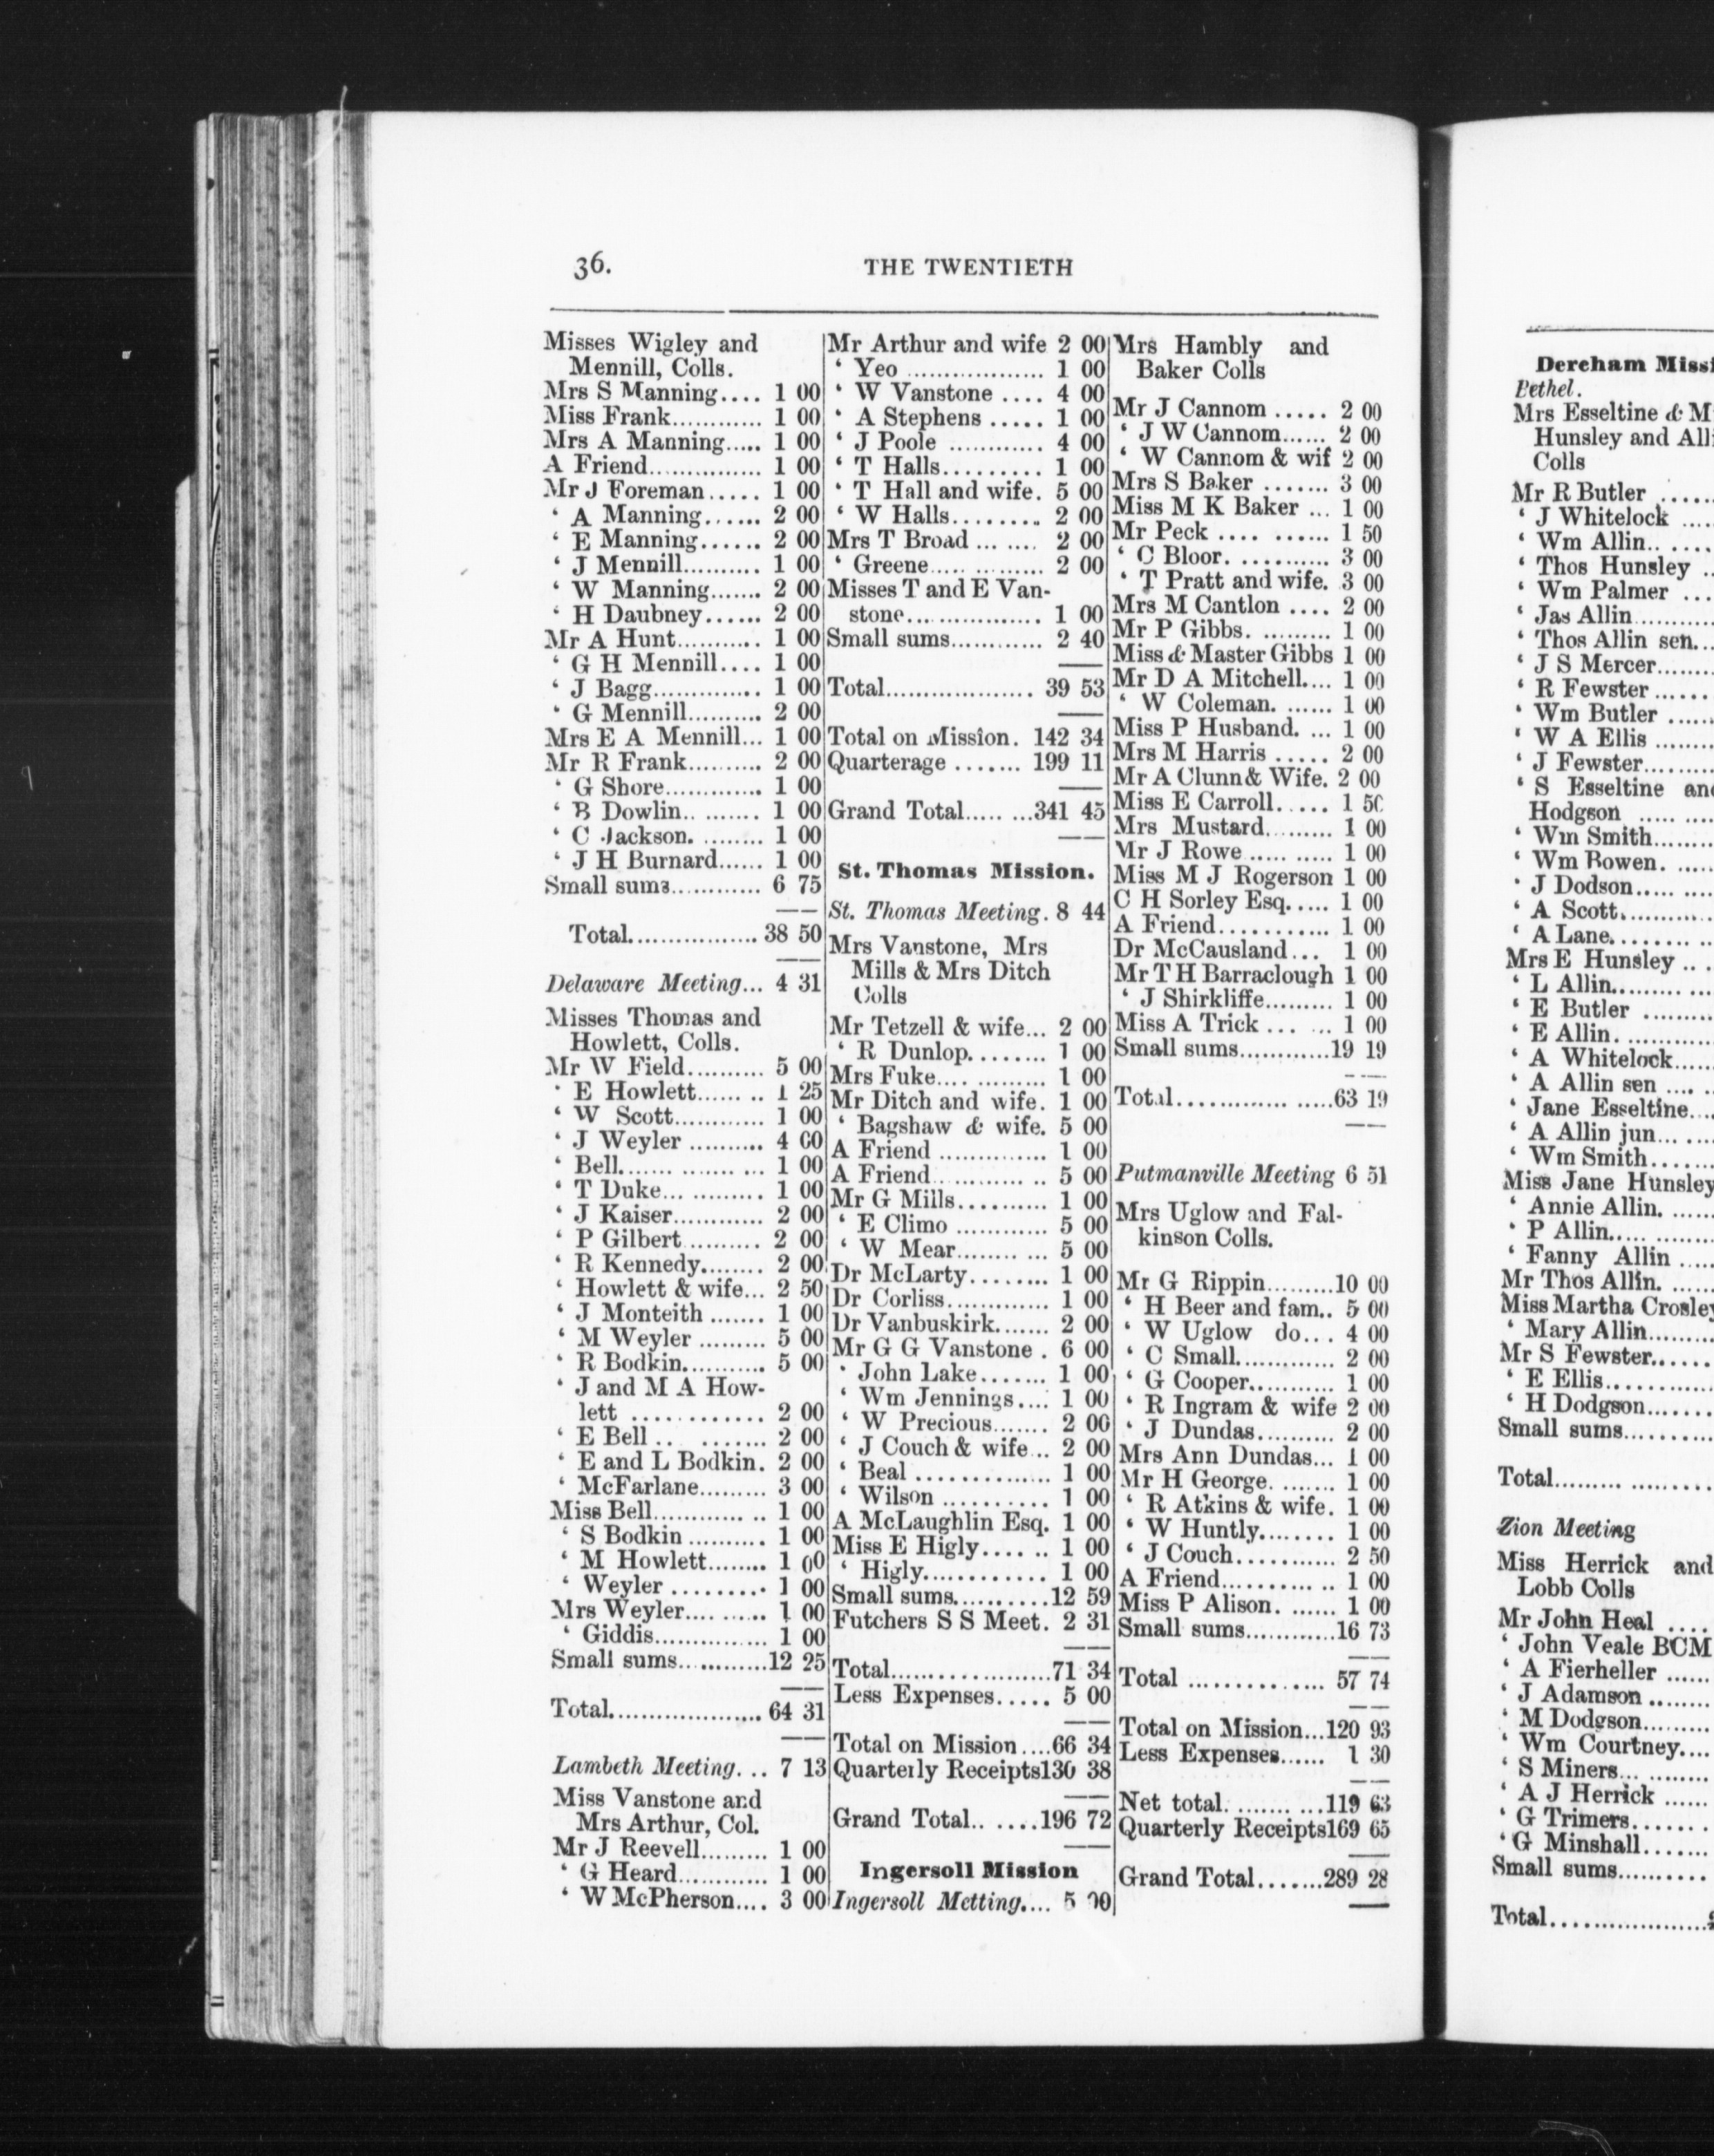 36.
THE TWENTIETH
Misses Wigley and
Mennill, Colls.
Mrs S Manning.... 1 00
Miss Frank............ 1 00
Mrs A Manning..... 1 00
A Friend............... 1 00
Mr J Foreman..... 1 00
‘ A Manning...... 2 00
‘ E Manning...... 2 00
‘ J Mennill.......... 1 00
‘ W Manning....... 2 00
‘ H Daubney...... 2 00
Mr A Hunt........... 1 00
‘ G H Mennill.... 1 00
‘ J Bagg.............. 1 00
‘ G Mennill.......... 2 00
Mrs E A Mennill... 1 00
Mr R Frank.......... 2 00
‘ G Shore............. 1 00
‘ B Dowlin.. ........ 1 00
‘ C Jackson. ........ 1 00
‘ J H Burnard...... 1 00
Small sums............ 6 75
Total................. 38 50
Delaware Meeting... 4 31
Misses Thomas and
Howlett, Colls.
Mr W Field.......... 5 00
‘ E Howlett...... .. 1 25
‘ W Scott............ 1 00
‘ J Weyler .......... 4 00
‘ Bell....... ........ ... 1 00
‘ T Duke... .......... 1 00
‘ J Kaiser............ 2 00
‘ P Gilbert.......... 2 00
‘ R Kennedy........ 2 00
‘ Howlett & wife... 2 50
‘ J Monteith ....... 1 00
‘ M Weyler ......... 5 00
‘ R Bodkin........... 5 00
‘ J and M A How-
lett ............. 2 00
‘ E Bell .. ........ 2 00
‘ E and L Bodkin. 2 00
‘ McFarlane......... 3 00
Miss Bell............. .. 1 00
‘ S Bodkin .......... 1 00
‘ M Howlett........ 1 00
‘ Weyler ......... 1 00
Mrs Weyler.... ...... 1 00
‘ Giddis............... 1 00
Small sums...........12 25
Total................... 64 31
Lambeth Meeting. .. 7 13
Miss Vanstone and
Mrs Arthur, Col.
Mr J Reevell......... 1 00
‘ G Heard............ 1 00
‘ W McPherson.... 3 00
Mr Arthur and wife 2 00
‘ Yeo .................. 1 00
‘ W Vanstone .... 4 00
‘ A Stephens ..... 1 00
‘ J Poole ............ 4 00
‘ T Halls.......... 1 00
‘ T Hall and wife. 5 00
‘ W Halls......... 2 00
Mrs T Broad ... .... 2 00
‘ Greene..... ......... 2 00
Misses T and E Van-
stone................. 1 00
Small sums............ 2 40
Total................... 39 53
Total on Mission. 142 34
Quarterage ....... 199 11
Grand Total..... ...341 45
St. Thomas Mission.
St. Thomas Meeting. 8 44
Mrs Vanstone, Mrs
Mills & Mrs Ditch
Colls
Mr Tetzell & wife... 2 00
‘ R Dunlop........ 1 00
Mrs Fuke.... ......... 1 00
Mr Ditch and wife. 1 00
‘ Bagshaw & wife. 5 00
A Friend .............. 1 00
A Friend............. .. 5 00
Mr G Mills.......... 1 00
‘ E Climo ............ 5 00
‘ W Mear........ ... 5 00
Dr McLarty......... 1 00
Dr Corliss............. 1 00
Dr Vanbuskirk....... 2 00
Mr G G Vanstone . 6 00
‘ John Lake....... 1 00
‘ Wm Jennings.... 1 00
‘ W Precious....... 2 00
‘ J Couch & wife... 2 00
‘ Beal .............. 1 00
‘ Wilson .......... 1 00
A McLaughlin Esq. 1 00
Miss E Higly...... .. 1 00
‘ Higly............. 1 00
Small sums..........12 59
Futchers S S Meet. 2 31
Total....................71 34
Less Expenses..... 5 00
Total on Mission....66 34
Quarterly Receipts130 38
Grand Total.. .....196 72
Ingersoll Mission
Ingersoll Metting.... 5 00
Mrs Hambly and
Baker Colls
Mr J Cannom ..... 2 00
‘ J W Cannom...... 2 00
‘ W Cannom & wif 2 00
Mrs S Baker ....... 3 00
Miss M K Baker ... 1 00
Mr Peck .... ...... 1 50
‘ C Bloor. .......... 3 00
‘ T Pratt and wife. 3 00
Mrs M Cantlon .... 2 00
Mr P Gibbs. ......... 1 00
Miss & Master Gibbs 1 00
Mr D A Mitchell.... 1 00
‘ W Coleman. ...... 1 00
Miss P Husband. ... 1 00
Mrs M Harris ..... 2 00
Mr A Clunn & Wife. 2 00
Miss E Carroll..... 1 50
Mrs Mustard......... 1 00
Mr J Rowe ..... ..... 1 00
Miss M J Rogerson 1 00
C H Sorley Esq..... 1 00
A Friend............ 1 00
Dr McCausland... 1 00
Mr T H Barraclough 1 00
‘ J Shirkliffe......... 1 00
Miss A Trick ... ... 1 00
Small sums............19 19
Total............. .....63 19
Putmanville Meeting 6 51
Mrs Uglow and Fal-
kinson Colls.
Mr G Rippin.........10 00
‘ H Beer and fam.. 5 00
‘ W Uglow do... 4 00
‘ C Small............. 2 00
‘ G Cooper........... 1 00
‘ R Ingram & wife 2 00
‘ J Dundas.......... 2 00
Mrs Ann Dundas... 1 00
Mr H George. ....... 1 00
‘ R Atkins & wife. 1 00
‘ W Huntly........ 1 00
‘ J Couch........... 2 50
A Friend........... .. 1 00
Miss P Alison. ...... 1 00
Small sums............16 73
Total .............. 57 74
Total on Mission...120 93
Less Expenses...... 1 30
Net total. ........ ...119 63
Quarterly Receipts169 65
Grand Total.......289 28
Dereham
Bethel.
Mrs Esseltine &
Hunsley and
Colls
Mr R Butler ......
‘ J Whitelock ....
‘ Wm Allin.. .....
‘ Thos Hunsley ..
‘ Wm Palmer ...
‘ Jas Allin...........
‘ Thos Allin sen...
‘ J S Mercer.......
‘ R Fewster ......
‘ Wm Butler .....
‘ W A Ellis ........
‘ J Fewster.........
‘ S Esseltine and
Hodgson ..... .....
‘ Wm Smith........
‘ Wm Bowen. .....
‘ J Dodson..... ....
‘ A Scott...........
‘ A Lane......... ..
Mrs E Hunsley .. .
‘ L Allin......... ...
‘ E Butler .........
‘ E Allin. ...........
‘ A Whitelock.....
‘ A Allin sen .... ..
‘ Jane Esseltine...
‘ A Allin jun... ....
‘ Wm Smith.......
Miss Jane Hunsley
‘ Annie Allin. ......
‘ P Allin..... ........
‘ Fanny Allin .....
Mr Thos Allin. ......
Miss Martha Crosley
‘ Mary Allin.........
Mr S Fewster.......
‘ E Ellis............
‘ H Dodgson.......
Small sums..........
Total......... ..........
Zion Meeting
Miss Herrick and
Lobb Colls
Mr John Heal ....
‘ John Veale BCM
‘ A Fierheller ......
‘ J Adamson ........
‘ M Dodgson.........
‘ Wm Courtney....
‘ S Miners... ........
‘ A J Herrick ......
‘ G Trimers.......
‘ G Minshall.......
Small sums..........
Total...................